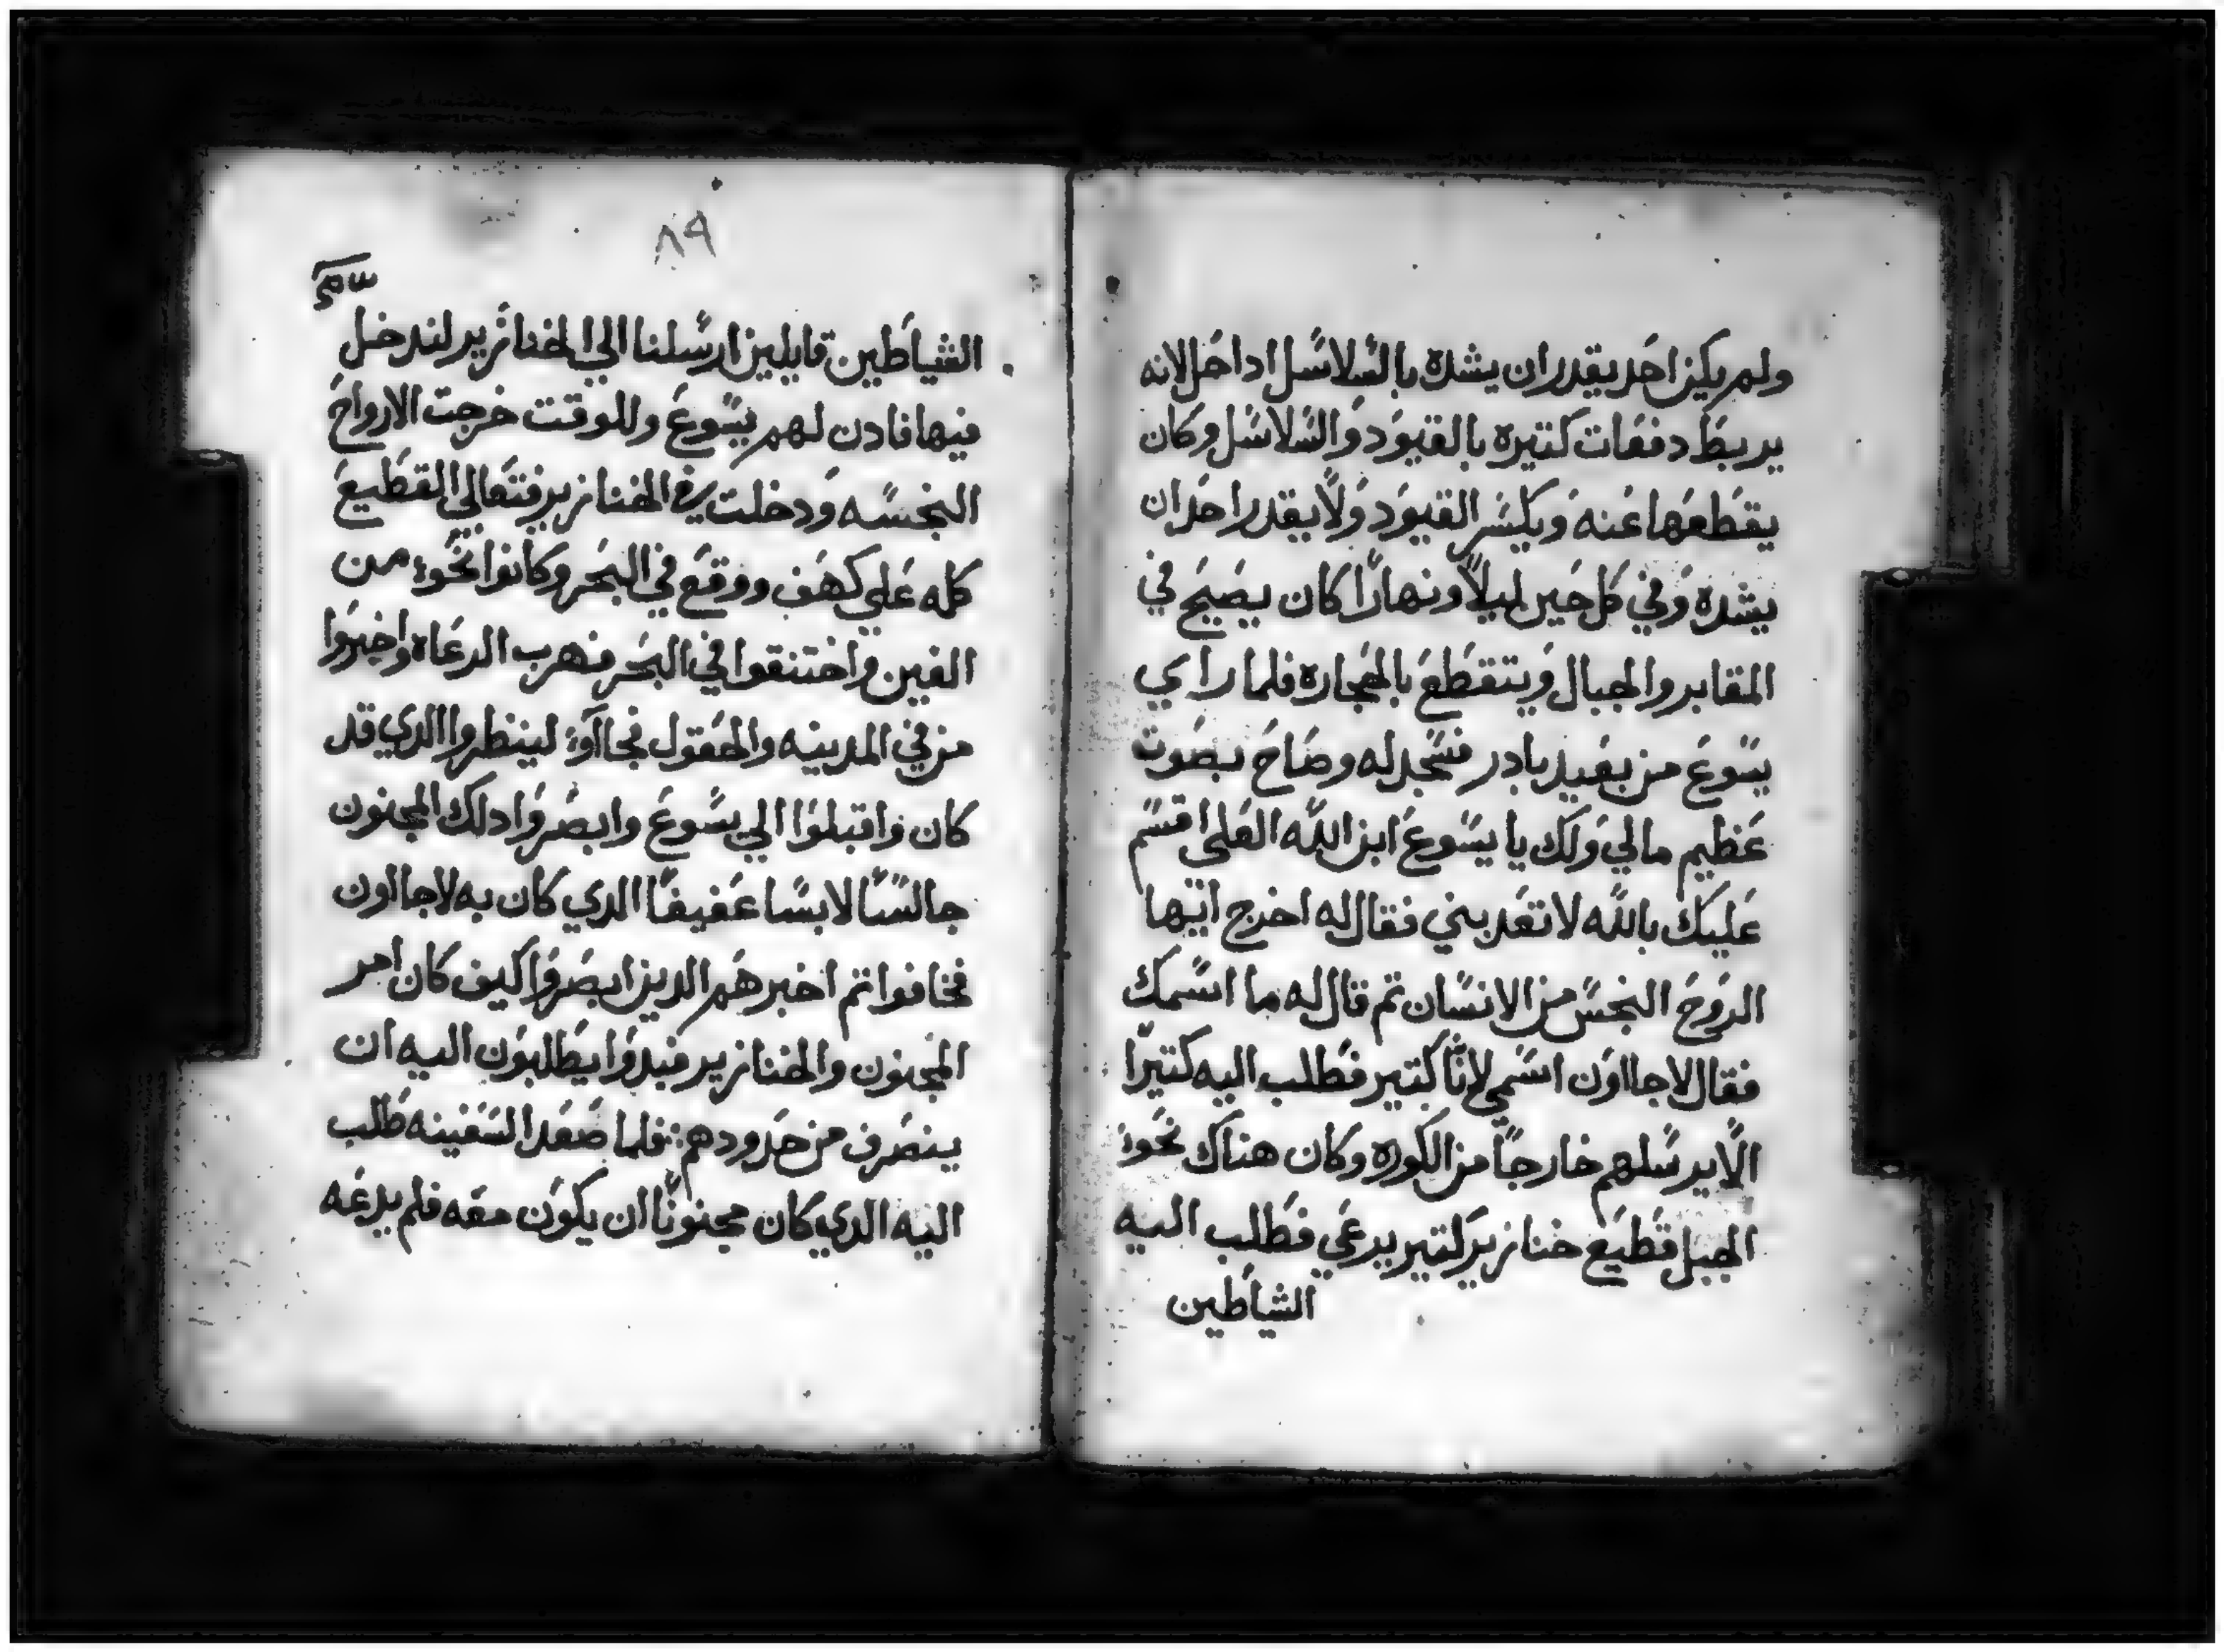 ولم يكن احد يقدر ان يشده بالسلاسل ادا خل لانه
يربط دفعات كتيره بالقيود والسلاسل وكان
يقطعها عنه ويكسر القيود ولا يقدر احد ان
يشده وفي كل حين ليلاً ونهاراً كان يصيح في
المقابر والجبال ويتقطع بالحجاره فلما راي
يسوع من بعيد بادر فسجد له وصاح بصوت
عظيم مالي ولك يا يسوع ابن الله العلي اقسم
عليك بالله لا تعدبني فقال له اخرج ايها
الروح النجس من الانسان تم قال له ما اسمك
فقال لاجااون اسمي لانّا كتير فطلب اليه كتيراً
الّا يرسلهم خارجاً من الكوره وكان هناك نحو
الجبل قطيع خنازير كتير يرعي فطلب اليه
الشياطين
٨٩
الشياطين قايلين ارسلنا الي الخنازير لندخل
فيها فادن لهم يسوع وللوقت خرجت الارواح
النجسه ودخلت في الخنازير فتعالي القطيع
كله علي كهف ووقع في البحر وكانوا نحو من
الفين واختنقوا في البحر فهرب الرعاه واخبروا
من في المدينه والحقول فجااو لينظروا الدي قد
كان واقبلوا الي يسوع وابصروا دلك المجنون
جالساً لابسا عفيفاً الدي كان به لاجااون
فخافوا تم اخبرهم الدين ابصروا كيف كان امر
المجنون والخنازير فبدوا يطلبون اليه ان
ينصرف من حدودهم فلما صعد السفينه طلب
اليه الدي كان مجنوناً ان يكون معه فلم يدعه